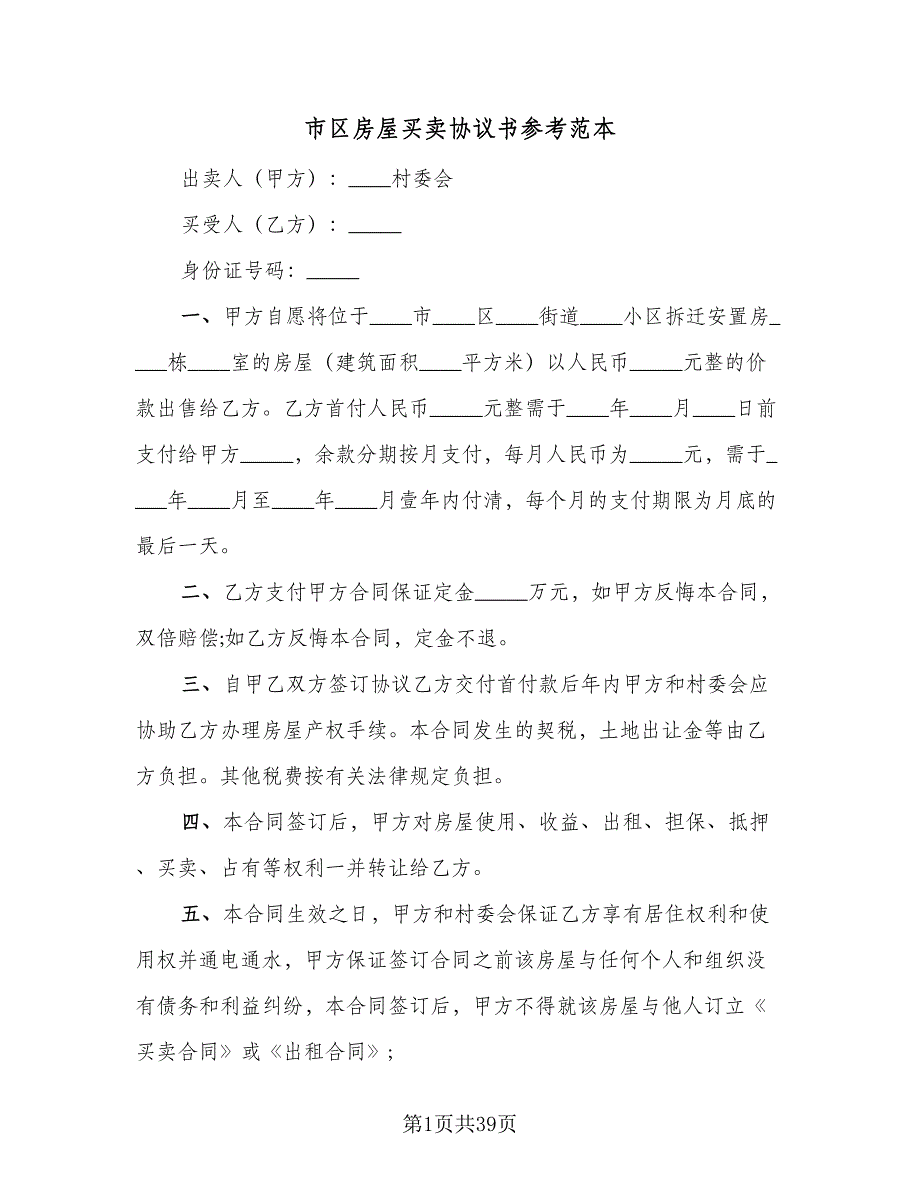 市区房屋买卖协议书参考范本
出卖人（甲方）：____村委会
买受人（乙方）：_____
身份证号码：_____
一、甲方自愿将位于____市____区____街道____小区拆迁安置房_
___栋____室的房屋（建筑面积____平方米）以人民币_____元整的价
款出售给乙方。乙方首付人民币_____元整需于____年____月____日前
支付给甲方_____，余款分期按月支付，每月人民币为_____元，需于_
___年____月至____年____月壹年内付清，每个月的支付期限为月底的
最后一天。
二、乙方支付甲方合同保证定金_____万元，如甲方反悔本合同，
双倍赔偿;如乙方反悔本合同，定金不退。
三、自甲乙双方签订协议乙方交付首付款后年内甲方和村委会应
协助乙方办理房屋产权手续。本合同发生的契税，土地出让金等由乙
方负担。其他税费按有关法律规定负担。
四、本合同签订后，甲方对房屋使用、收益、出租、担保、抵押
、买卖、占有等权利一并转让给乙方。
五、本合同生效之日，甲方和村委会保证乙方享有居住权利和使
用权并通电通水，甲方保证签订合同之前该房屋与任何个人和组织没
有债务和利益纠纷，本合同签订后，甲方不得就该房屋与他人订立《
买卖合同》或《出租合同》;
第1页共39页